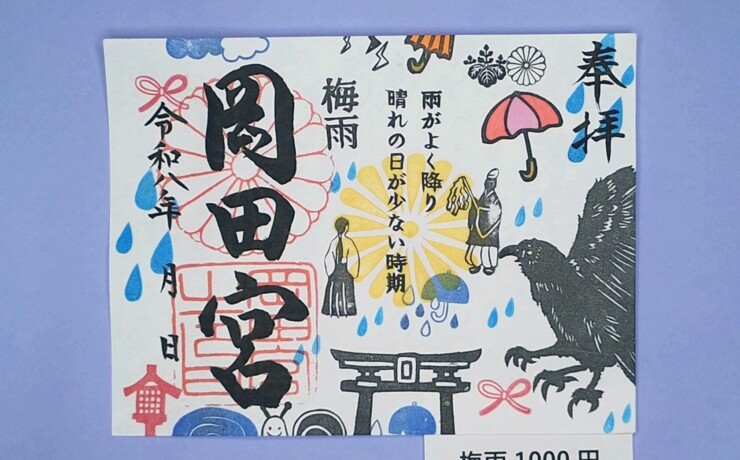 奉拝
雨がよく降り
晴れの日が少ない時期
梅雨
岡田宮
令和八年 月 日
梅雨 1000円